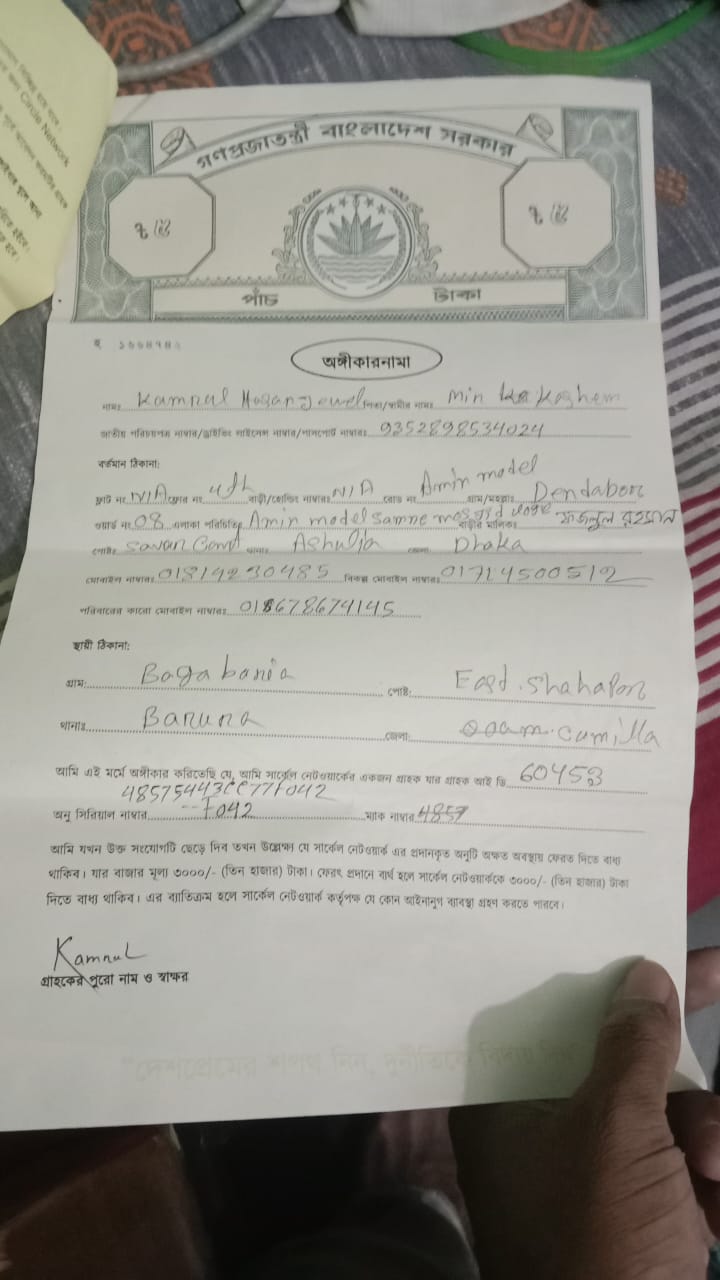 Circle Network
গণপ্রজাতন্ত্রী বাংলাদেশ সরকার
৳ ৫ ৳ ৫
পাঁচ টাকা
অঙ্গীকারনামা
নামঃ Kamrul Hasan Jewel পিতা/স্বামীর নামঃ Min Kashem
জাতীয় পরিচয়পত্র নাম্বার/ড্রাইভিং লাইসেন্স নাম্বার/পাসপোর্ট নাম্বারঃ 9352898534024
বর্তমান ঠিকানা:
ফ্লাট নং N/A ফ্লোর নং 4th বাড়ী/হোল্ডিং নাম্বারঃ N/A রোড নং Amin model গ্রাম/মহল্লাঃ Dendabor
ওয়ার্ড নং 08 এলাকা পরিচিতিঃ Amin model samne mosjid বাড়ীর মালিকঃ ফজলুল রহমান
পোষ্টঃ Savar Cant থানাঃ Ashulia জেলা Dhaka
মোবাইল নাম্বারঃ 01814230485 বিকল্প মোবাইল নাম্বারঃ 01714500512
পরিবারের কারো মোবাইল নাম্বারঃ
স্থায়ী ঠিকানা:
গ্রাম: Bagabania পোষ্ট: East. Shahapor
থানাঃ Barura জেলা: Cumilla
আমি এই মর্মে অঙ্গীকার করিতেছি যে, আমি সার্কেল নেটওয়ার্কের একজন গ্রাহক যার গ্রাহক আই ডি 60453
48575443CE77F042
অনু সিরিয়াল নাম্বার F042 ম্যাক নাম্বার 4857
আমি যখন উক্ত সংযোগটি ছেড়ে দিব তখন উল্লেক্ষ্য যে সার্কেল নেটওয়ার্ক এর প্রদানকৃত অনুটি অক্ষত অবস্থায় ফেরত দিতে বাধ্য
থাকিব। যার বাজার মূল্য ৩০০০/- (তিন হাজার) টাকা। ফেরৎ প্রদানে ব্যর্থ হলে সার্কেল নেটওয়ার্ককে ৩০০০/- (তিন হাজার) টাকা
দিতে বাধ্য থাকিব। এর ব্যতিক্রম হলে সার্কেল নেটওয়ার্ক কর্তৃপক্ষ যে কোন আইনানুগ ব্যবস্থা গ্রহণ করতে পারবে।
Kamrul
গ্রাহকের পুরো নাম ও স্বাক্ষর
"দেশপ্রেমের শপথ নিন, দুর্নীতিকে বিদায় দিন"